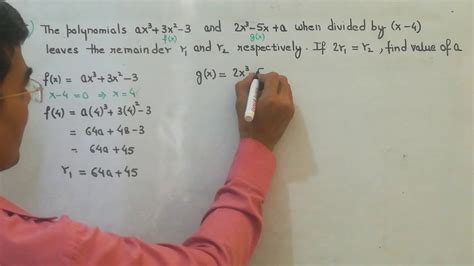 The polynomials ax³+3x²-3 and 2x³-5x+a when divided by (x-4)
f(x) g(x)
leaves the remainder r₁ and r₂ respectively. If 2r₁ = r₂, find value of a
f(x) = ax³+3x²-3
x-4=0 ⇒ x=4
f(4) = a(4)³+3(4)²-3
= 64a + 48-3
= 64a + 45
r₁ = 64a+45
g(x) = 2x³-5